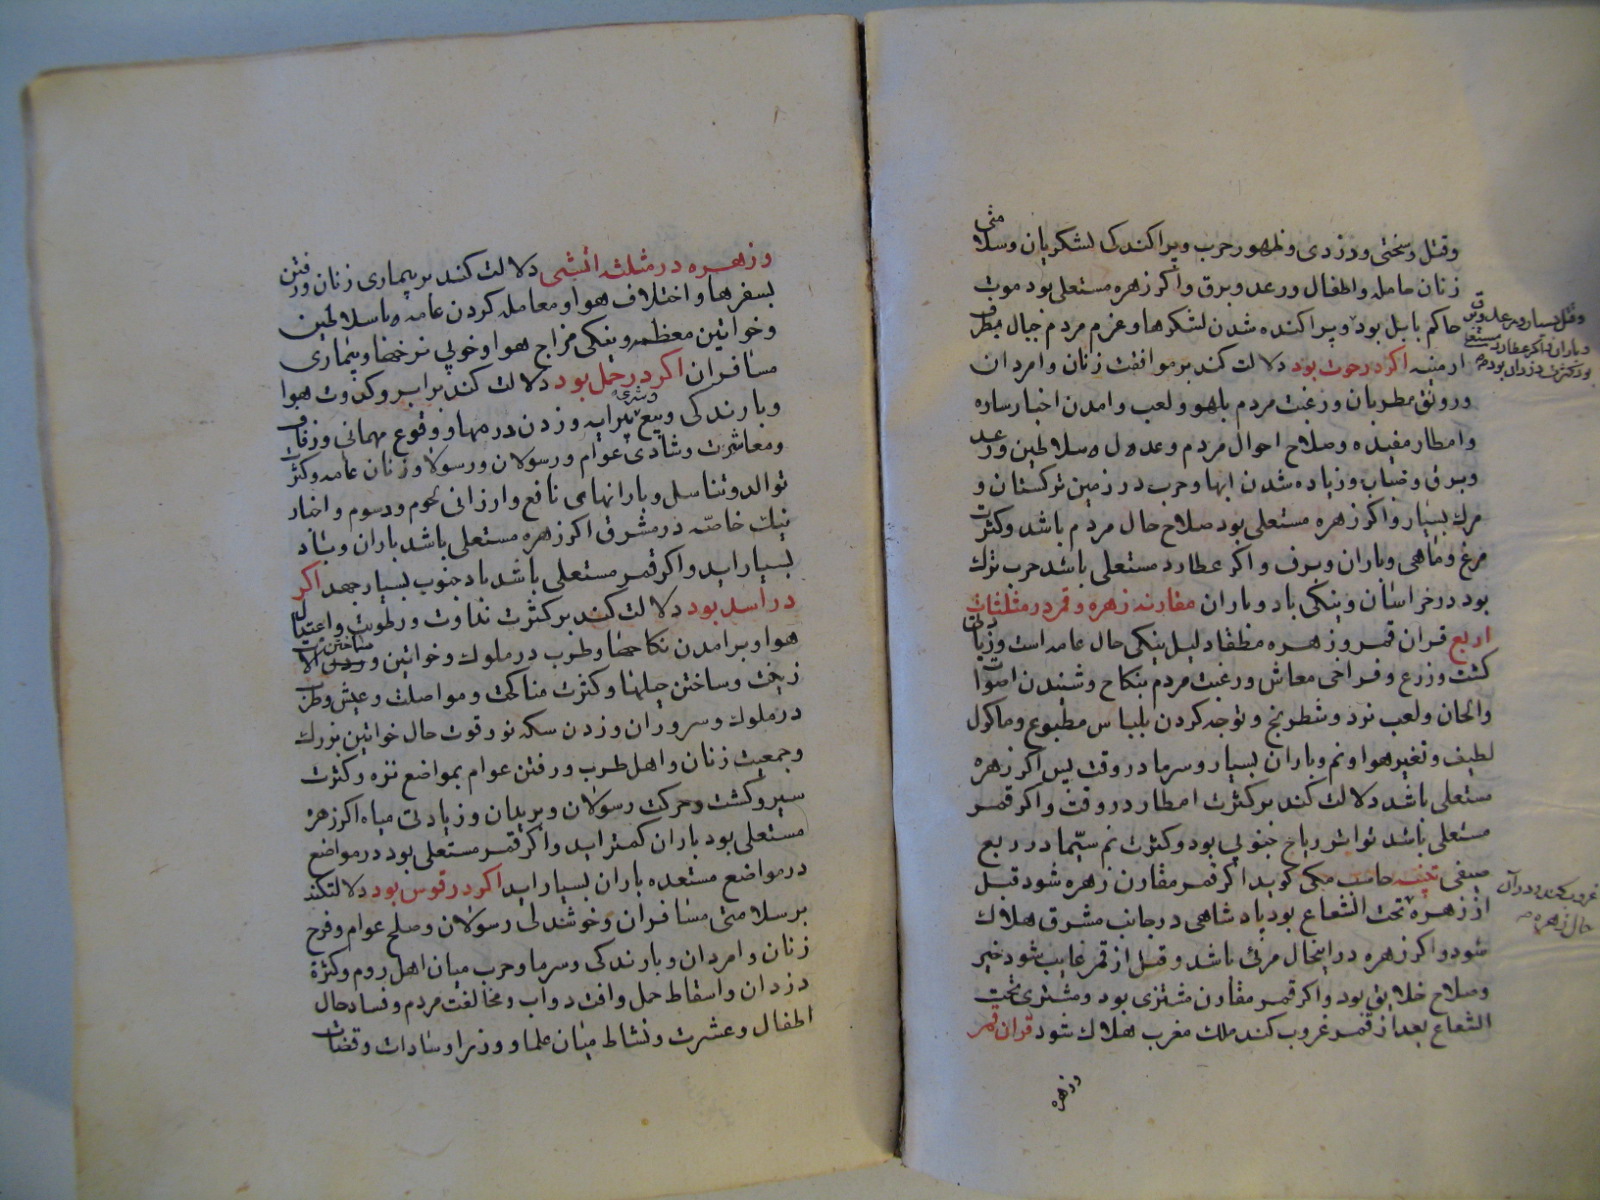 وقتل وسختی و دزدی و ظهور حرب و پراکندکی لشکریان وسلامتی
زنان حامله و اطفال و رعد و برق و اکر زهره مستعلی بود موت
حاکم بابل بود و پراکنده شدن لشکرها و عزم مردم جبال بطرف
ارمنیه اکر در حوت بود دلالت کند بر موافقت زنان و امردان
و رونق مطربان و رغبت مردم بلهو و لعب و امدن اخبار ساره
و امطار مفیده و صلاح احوال مردم و عدول و سلاطین و رعد
و برق و ضباب و زیاده شدن ابها و حرب در زمین ترکستان و
مرك بسیار و اکر زهره مستعلی بود صلاح حال مردم باشد و کثرت
مرغ و ماهی و باران و برف و اکر عطارد مستعلی باشد حرب ترك
بود در خراسان و نیکی باد و باران مقارنه زهره و قمر در مثلثات
اربع قران قمر و زهره مطلقا دلیل نیکی حال عامه است و زیادتی
کشت و زرع و فراخی معاش و رغبت مردم بنکاح و شنیدن اصوات
والحان و لعب نرد و شطرنج و توجه کردن بلباس مطبوع و ماکول
لطیف و تغیر هوا و نم و باران بسیار و سرما در وقت پس اکر زهره
مستعلی باشد دلالت کند بر کثرت امطار در وقت و اکر قمر
مستعلی باشد تواتر ریاح جنوبی بود و کثرت نم سیّما در ربع
صیفی تتمیه صاحب مکی کوید اکر قمر مقارن زهره شود قبل
از زهره تحت الشعاع بود پادشاهی در جانب مشرق هلاك
شود و اکر زهره در اینحال مرئی باشد و قبل از قمر غایب شود خیر
و صلاح خلایق بود و اکر قمر مقارن مشتری بود و مشتری تحت
الشعاع بعد از قمر غروب کند ملك مغرب هلاك شود قران قمر
و زهره
وقتل بسیار و رعد و برق
و باران و اکر عطارد مستعلی
بود کثرت دزدان بود
غروب کند و در آن
حال زهره
و زهره در مثلثه اتشی دلالت کند بر بیماری زنان و رفتن
بسفرها و اختلاف هوا و معامله کردن عامه با سلاطین
و خواتین معظمه و نیکی مزاج هوا و خوبی نرخها و بیماری
مسافران اکر در حمل بود دلالت کند بر ابر و کدورت هوا
و بارندکی و بیع و شری پیرایه و زدن درمها و وقوع مهمانی و زفاف
و معاشرت و شادی عوام و رسولان و رسولا و زنان عامه و کثرت
توالد و تناسل و بارانهای نافع و ارزانی لحوم و دسوم و اخبار
نیك خاصّه در مشرق اکر زهره مستعلی باشد باران و باد
بسیار اید و اکر قمر مستعلی باشد باد جنوب بسیار جهد اکر
در اسد بود دلالت کند بر کثرت نداوت و رطوبت و اعتدال
هوا و برامدن نکاحها و طرب در ملوك و خواتین و ساختن الات
زینت و ساختن حیلها و کثرت مناکحت و مواصلت و عیش و طرب
در ملوك و سروران و زدن سکه نو و قوت حال خواتین بزرك
و جمعیت زنان و اهل طرب و رفتن عوام بمواضع نزه و کثرت
سیر و کشت و حرکت رسولان و بریدان و زیادتی میاه اکر زهره
مستعلی بود باران کمتر اید و اکر قمر مستعلی بود در مواضع
در مواضع مستعده باران بسیار اید اکر در قوس بود دلالت کند
بر سلامتی مسافران و خوشدلی رسولان و صلح عوام و فرح
زنان و امردان و بارندکی و سرما و حرب میان اهل روم و کثرة
دزدان و اسقاط حمل و افت دواب و مخالفت مردم و فساد حال
اطفال و عشرت و نشاط میان علما و وزرا و سادات و قضات